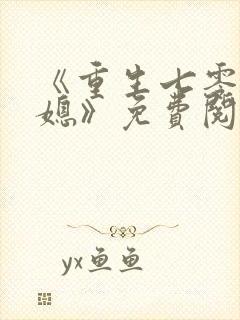 《重生七零
媳》免費閱
yx鱼鱼